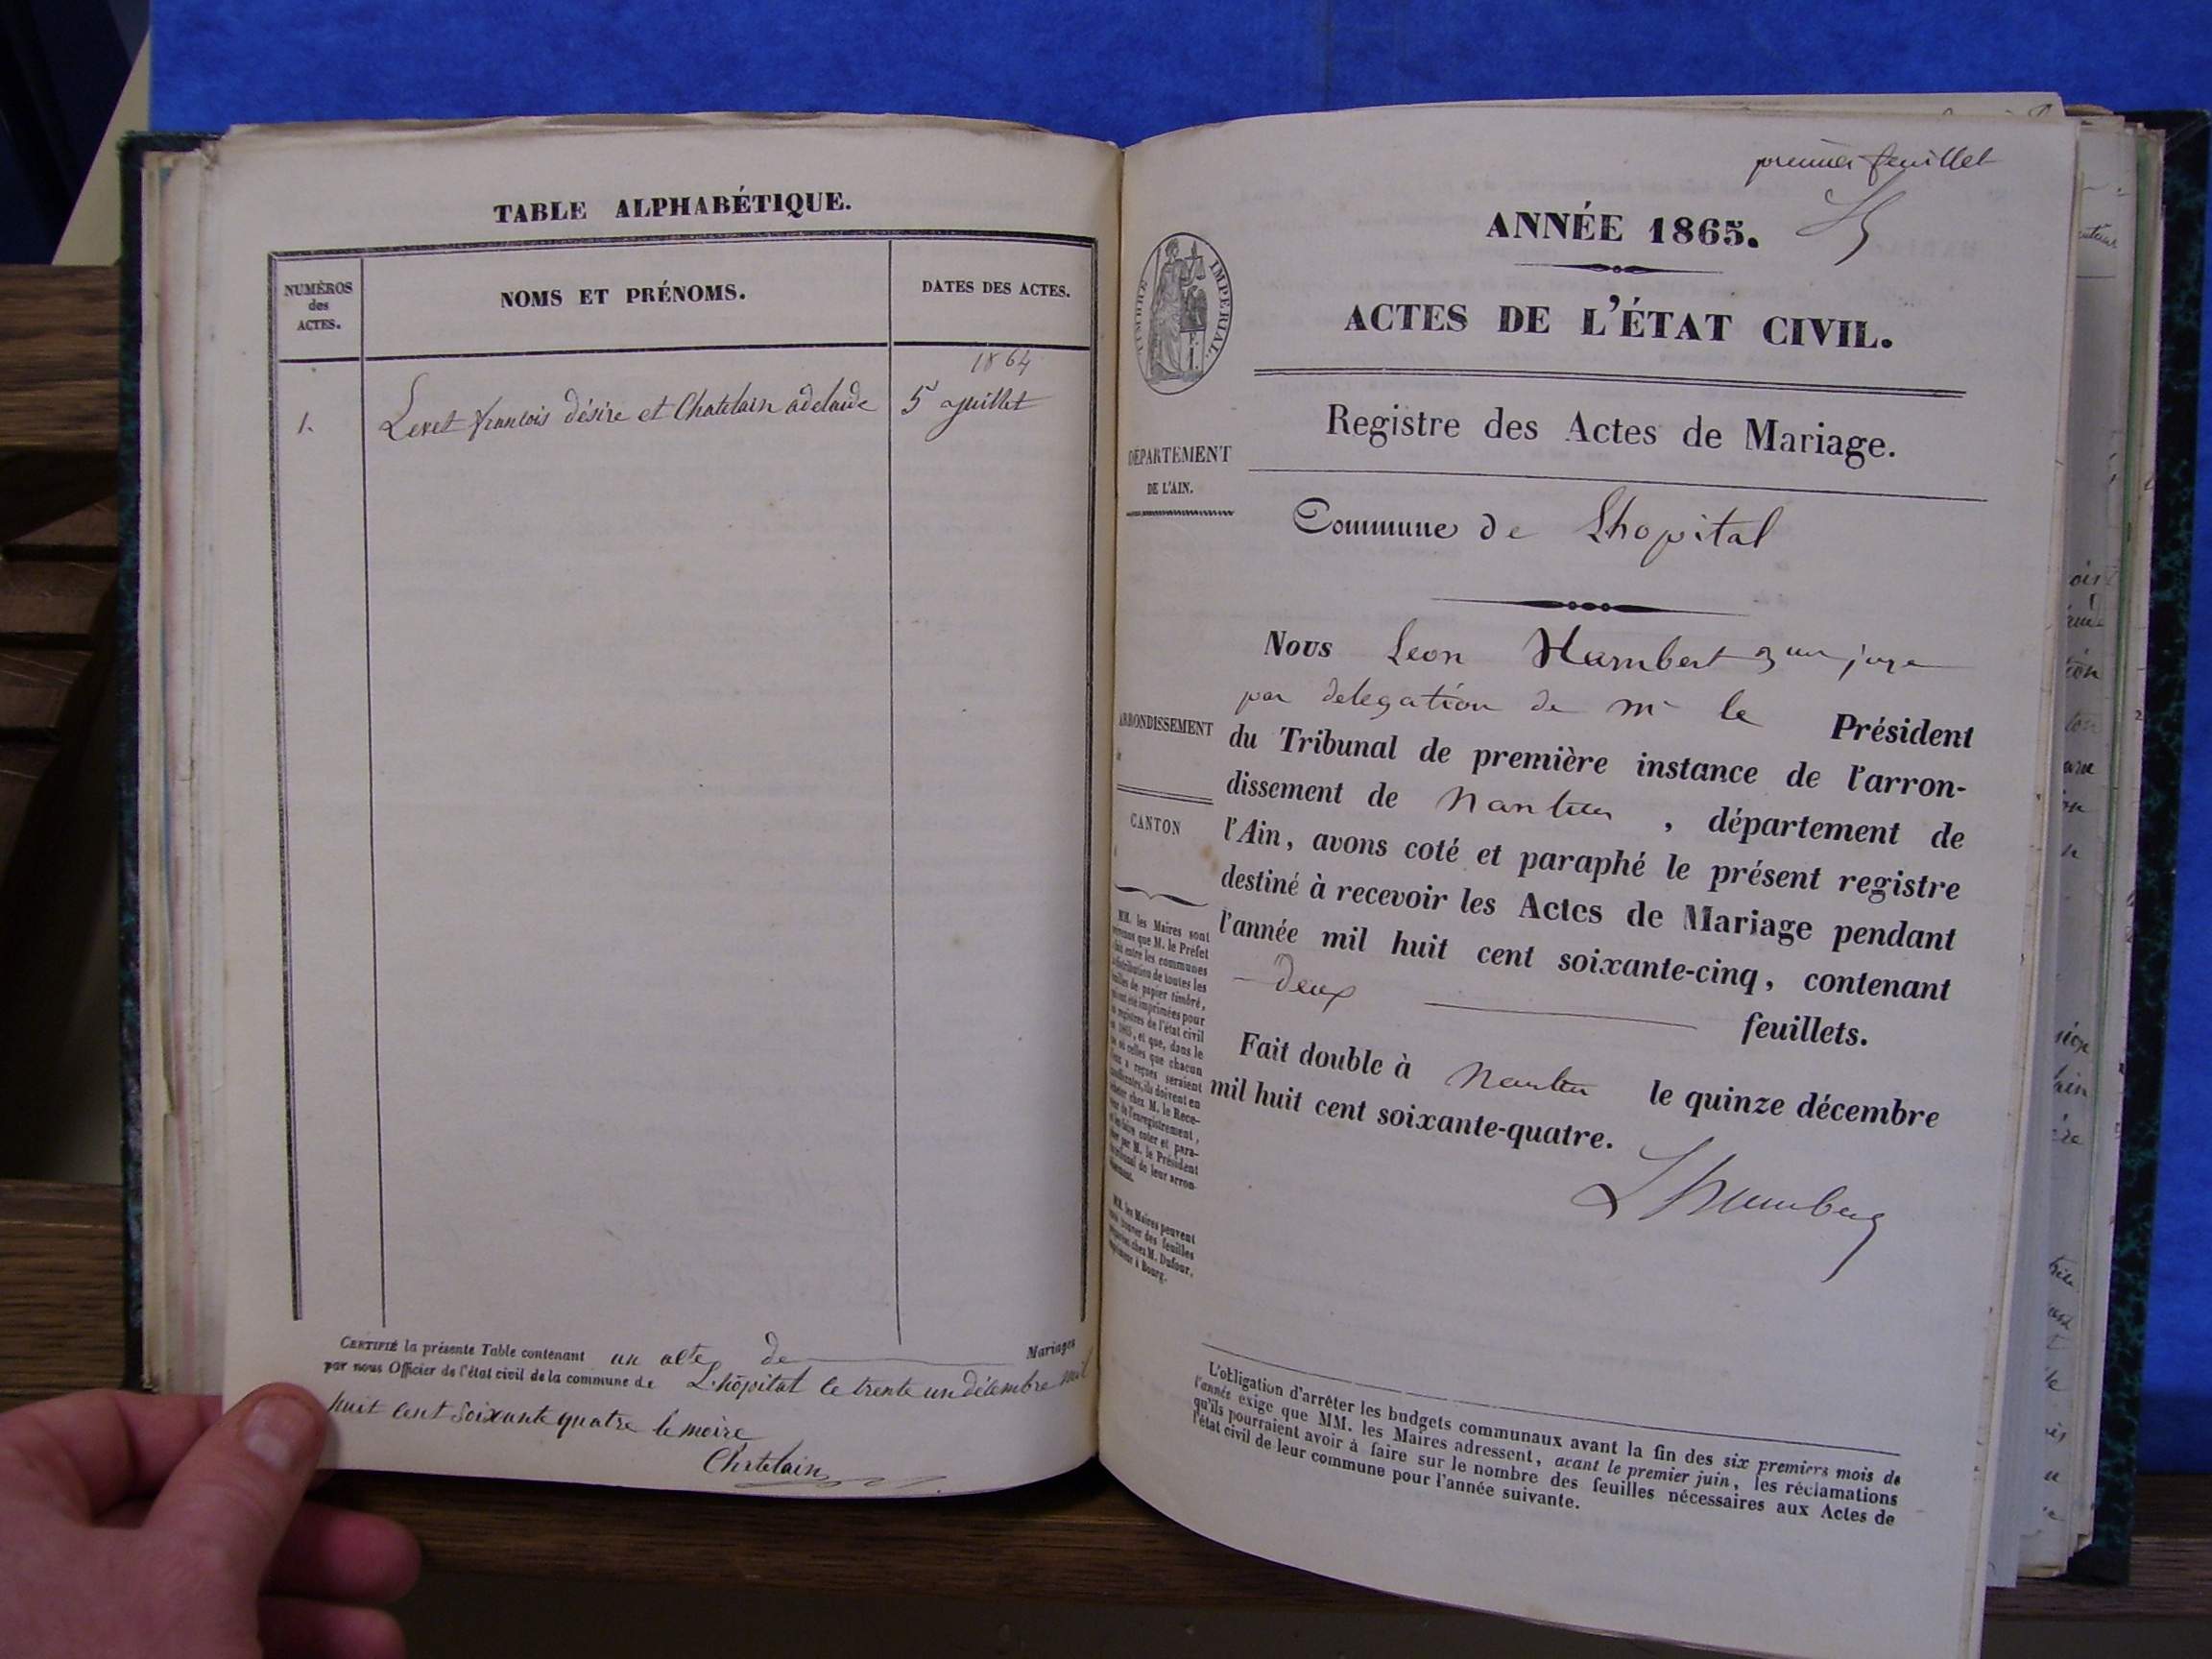 TABLE ALPHABÉTIQUE.
NUMÉROS
des
ACTES.
NOMS ET PRÉNOMS.
DATES DES ACTES.
1864
1. Levet francois désire et Chatelain adelaide 5 Juillet
CERTIFIÉ la présente Table contenant un acte de Mariages
par nous Officier de l'état civil de la commune de L'hôpital le trente un décembre mil
huit cent soixante quatre le maire
Chatelain
premier feuillet
ANNÉE 1865.
TIMBRE IMPÉRIAL.
ACTES DE L'ÉTAT CIVIL.
Registre des Actes de Mariage.
DÉPARTEMENT
DE L'AIN.
Commune de Lhopital
Nous Leon Humbert juge
par delegation de mr le Président
ARRONDISSEMENT
du Tribunal de première instance de l'arron-
dissement de Nantua, département de
CANTON
l'Ain, avons coté et paraphé le présent registre
destiné à recevoir les Actes de Mariage pendant
l'année mil huit cent soixante-cinq, contenant
deux feuillets.
Fait double à Nantua le quinze décembre
mil huit cent soixante-quatre.
LHumbert
MM. les Maires sont
que M. le Préfet
entre les communes
distribution de toutes les
feuilles de papier timbré,
été imprimées pour
registres de l'état civil
1865, et que, dans le
où celles que chacun
a reçues seraient
ils doivent en
chez M. le Rece-
de l'enregistrement,
faire coter et para-
par M. le Président
tribunal de leur arron-
MM. les Maires peuvent
trouver des feuilles
chez M. Dufour,
à Bourg.
L'obligation d'arrêter les budgets communaux avant la fin des six premiers mois de
l'année exige que MM. les Maires adressent, avant le premier juin, les réclamations
qu'ils pourraient avoir à faire sur le nombre des feuilles nécessaires aux Actes de
l'état civil de leur commune pour l'année suivante.